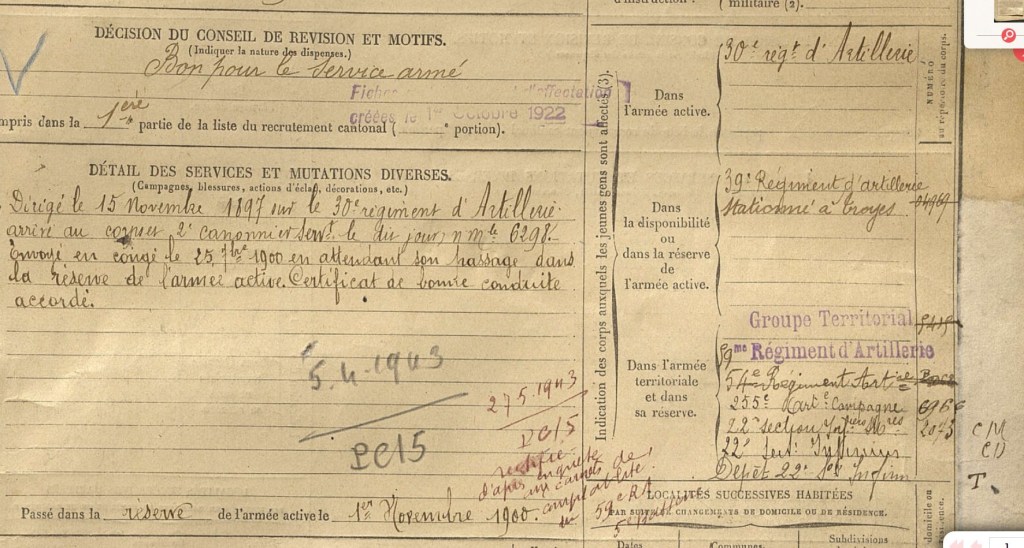 militaire (2).
DÉCISION DU CONSEIL DE REVISION ET MOTIFS.
(Indiquer la nature des dispenses.)
Bon pour le service armé
Fiches d'affectation
créées le 1er Octobre 1922
mpris dans la 1ère partie de la liste du recrutement cantonal ( e portion).
DÉTAIL DES SERVICES ET MUTATIONS DIVERSES.
(Campagnes, blessures, actions d'éclat, décorations, etc.)
Dirigé le 15 Novembre 1897 sur le 30e régiment d'Artillerie
arrivé au corps et 2e canonnier Servt. le du jour, n mle 6298.
Envoyé en congé le 25 7bre 1900 en attendant son passage dans
la réserve de l'armée active. Certificat de bonne conduite
accordé.
5.4.1943
27.5.1943
rectifié
d'après enquête
aux carnets de
comptabilité
59e RA
Passé dans la réserve de l'armée active le 1er Novembre 1900.
Indication des corps auxquels les jeunes gens sont affectés (3).
Dans
l'armée active.
30e régt. d'Artillerie
NUMÉRO
au répertoire du corps.
Dans
la disponibilité
ou
dans la réserve
de
l'armée active.
39e Régiment d'artillerie
stationné à troyes
Dans l'armée
territoriale
et dans
sa réserve.
Groupe Territorial
59me Régiment d'Artillerie
54e Régiment Artie
255e Campagne
22e section
22e
Dépôt 22e
LOCALITÉS SUCCESSIVES HABITÉES
PAR SUITE DE CHANGEMENTS DE DOMICILE OU DE RÉSIDENCE.
Dates
Communes.
Subdivisions
CM
CD
T.